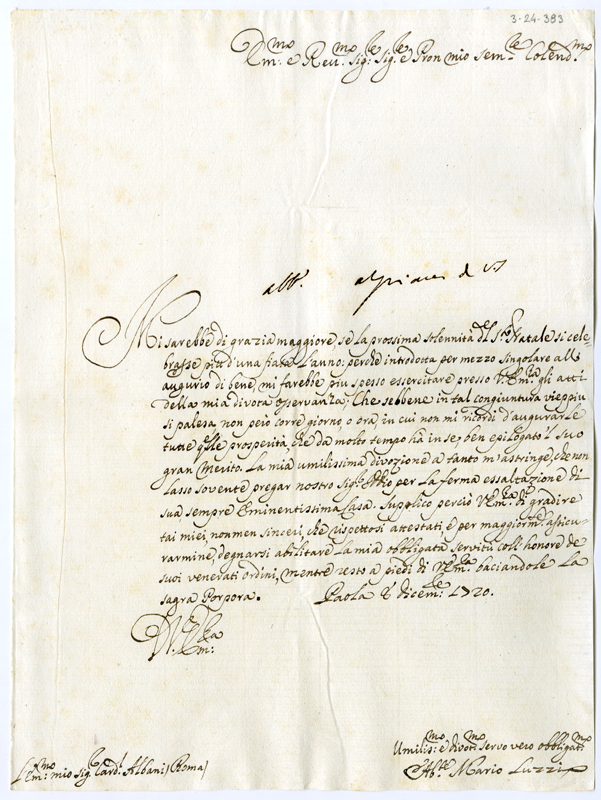 3-24-383
Em:mo e Reu:mo Sig:re Sig:re e Pron mio sem:re Colend:mo
Mi sarebbe di grazia maggiore se la prossima solennità del S:to Natale si cele-
brasse più d'una fiata l'anno: perche introdotta per mezzo singolare all'
augurio di bene, mi farebbe piu spesso essercitare presso V:Em:za gli atti
della mia divota osservanza; Che sebbene in tal congiuntura vieppiu
si palesa, non peiò corre giorno o ora, in cui non mi ricordi d'augurarle
tutte q:lle prosperità, che da molto tempo hà in se ben epilogato 'l suo
gran merito. La mia umilissima divozione a tanto m'astringe, che non
lasso sovente pregar nostro Sig:re Iddio per la ferma essaltazione di
sua sempre Eminentissima Casa. Supplico perciò V:Em:za di gradire
tai miei, nonmen sinceri, che rispettosi attestati e per maggiorm:te assicu-
rarmine, degnarsi abilitare la mia obbligata servitù coll'honore de
suoi venerati ordini, mentre resto a piedi di V:Em:za baciandole la
sagra Porpora. Paola dicem:re 1720.
D. V. Em:za
Umilis:mo e divoti:mo servo vero obbligati:mo
Ab:te Mario Luzzi
Em:mo mio Sig:re Card:l Albani (Roma)